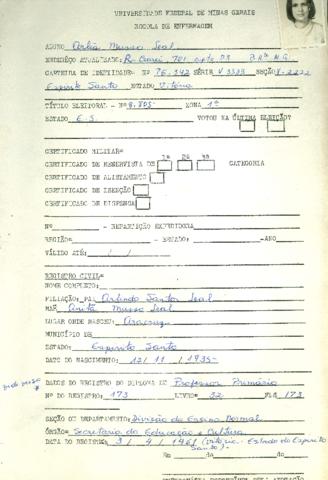 UNIVERSIDADE FEDERAL DE MINAS GERAIS
ESCOLA DE ENFERMAGEM
ALUNO: Orlia Musso Leal
ENDEREÇO ATUALIZADO: R. Ceará, 701 apto 03
CARTEIRA DE IDENTIDADE: Nº 76.342 SÉRIE V 3333 SECÇÃO
Espírito Santo ESTADO Vitória
TÍTULO ELEITORAL - Nº 8.805 ZONA 1ª
ESTADO E.S. VOTOU NA ÚLTIMA ELEIÇÃO?
CERTIFICADO MILITAR=
1a 2a 3a
CERTIFICADO DE RESERVISTA DE CATEGORIA
CERTIFICADO DE ALISTAMENTO
CERTIFICADO DE ISENÇÃO
CERTIFICADO DE DISPENSA
Nº - REPARTIÇÃO EXPEDIDORA
REGIÃO= - ESTADO: -ANO
VÁLIDO ATÉ: / /
REGISTRO CIVIL=
NOME COMPLETO:
FILIAÇÃO: PAI Arlindo Santos Leal
MÃE Anita Musso Leal
LUGAR ONDE NASCEU: Aracruz
MUNICÍPIO DE
ESTADO: Espírito Santo
DATA DO NASCIMENTO: 12/ 11 / 1935
DADOS DO REGISTRO DO DIPLOMA DE Professor Primário
Nº DO REGISTRO: 173 LIVRO= 32 FLS 173
SEÇÃO OU DEPARTAMENTO: Divisão do Ensino Normal
ÓRGÃO= Secretaria da Educação e Cultura
DATA DO REGISTRO: 3/ 4 / 1961 (Vitória - Estado do Espírito
Santo)-
do do